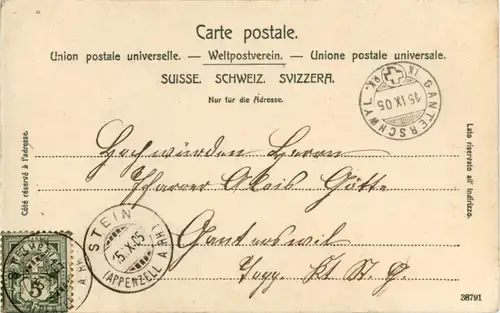 Carte postale.
Union postale universelle. — Weltpostverein. — Unione postale universale.
SUISSE. SCHWEIZ. SVIZZERA.
Nur für die Adresse.
GANTERSCHWYL
15 IX 05
Côté réservé à l'adresse.
Lato riservato all' indirizzo.
Hochwürden Herrn
Pfarrer Alois Götte
Ganterswil
Togg. Kt St. G.
STEIN
(APPENZELL A RH)
HELVETIA
5
38791